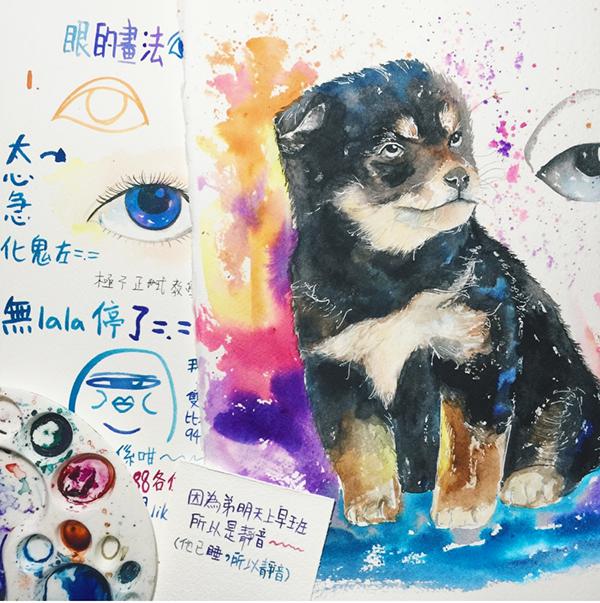 眼的畫法
太心急
化鬼左=.=
極乎正式教
無lala停了=.=
雙
比
94
係咁~~~
88各位
lik
因為弟明天上早班
所以是靜音~~~~
(他已睡,所以靜音)